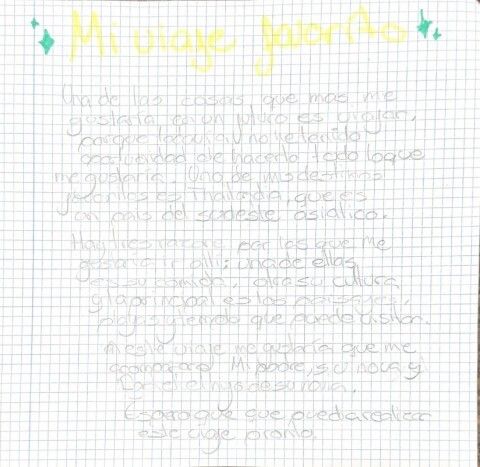 Mi viaje favorito
Una de las cosas que mas me
gustaria en un futuro es viajar,
porque todavia no he tenido
oportunidad de hacerlo todo lo que
me gustaria. Uno de mis destinos
favoritos es Thailandia, que es
un pais del sudeste asiatico.
Hay tres razones por las que me
gustaria ir alli: una de ellas
es su comida, otra su cultura
y la principal es los paisajes,
playas y templos que puedes visitar.
este viaje me gustaría que me
acompañara Mi padre, su novia y
el hijo de su novia.
Espero que que pueda realizar
este viaje pronto.